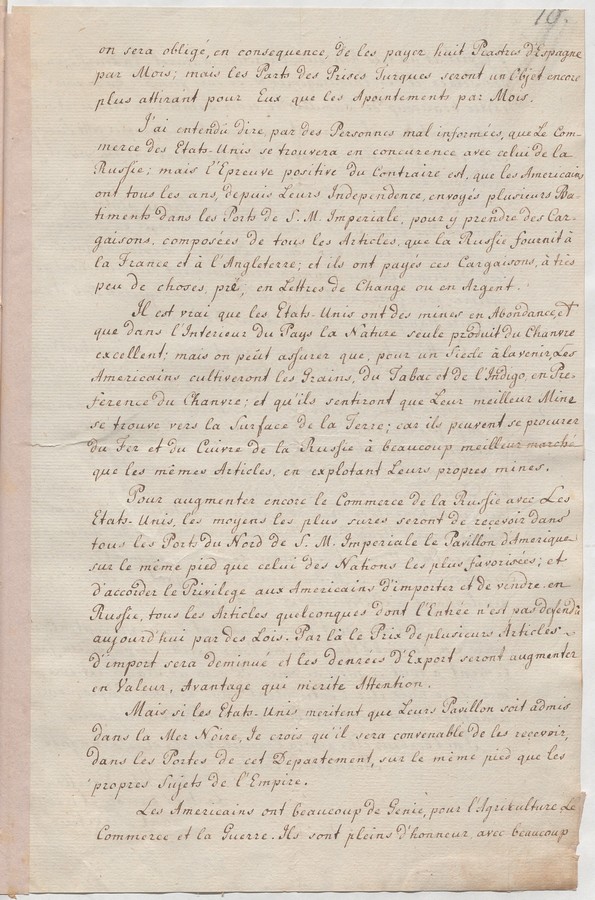 19.
on sera obligé, en consequence, de les payer huit Piastres d'Espagne
par Mois; mais les Parts des Prises Turques seront un Objet encore
plus attirant pour Eux que les Apointements par Mois.
J'ai entendu dire, par des Personnes mal informées, que Le Com-
merce des Etats-Unis se trouvera en concurence avec celui de la
Russie; mais l'Epreuve positive du Contraire est, que les Americains
ont tous les ans, depuis Leurs Independence, envoyés plusieurs Ba-
timents dans les Ports de S. M. Imperiale, pour y prendre des Car-
gaisons, composées de tous les Articles, que la Russie fournit à
la France et à l'Angleterre; et ils ont payés ces Cargaisons, à très
peu de choses, pré, en Lettres de Change ou en Argent.
Il est vrai que les Etats-Unis ont des mines en Abondance, et
que dans l'Interieur du Pays la Nature seule produit du Chanvre
excellent; mais on peût assurer que, pour un Siécle à lavenir, Les
Americains cultiveront les Grains, du Tabac et de l'Indigo, en Pre-
ference du Chanvre; et qu'ils sentiront que Leur meilleur Mine
se trouve vers la Surface de la Terre; car ils peuvent se procurer
du Fer et du Cuivre de la Russie à beaucoup meilleur marché
que les mêmes Articles, en explotant Leurs propres mines.
Pour augmenter encore le Commerce de la Russie avec Les
Etats-Unis, les moyens les plus sures seront de reçevoir dans
tous les Ports du Nord de S. M. Imperiale le Pavillon d'Amerique
sur le même pied que celui des Nations les plus favorisées; et
d'accorder le Privilege aux Americains d'importer et de vendre en
Russie, tous les Articles quelconques dont l'Entrée n'est pas defendu
aujourd'hui par des Lois. Par là le Prix de plusieurs Articles
d'import sera deminué et les denrées d'Export seront augmenter
en Valeur, Avantage qui merite Attention.
Mais si les Etats-Unis meritent que Leurs Pavillon soit admis
dans la Mer Noire, Je crois qu'il sera convenable de les recevoir,
dans les Portes de cet Departement, sur le même pied que les
propres Sujets de l'Empire.
Les Americains ont beaucoup de Genie, pour l'Agriculture Le
Commerce et la Guerre. Ils sont pleins d'honneur, avec beaucoup